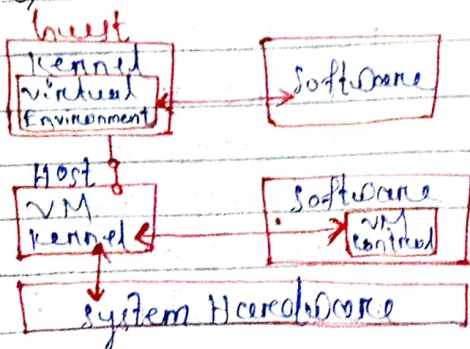 Guest
Kernel
Virtual
Environment
Software
Host
VM
Kernel
Software
VM
Control
System Hardware